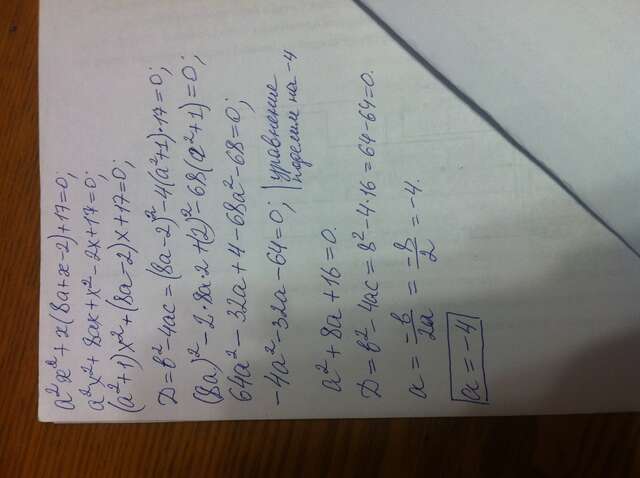 a²x² + x(8a+x-2)+17=0;
a²x²+8ax+x²-2x+17=0;
(a²+1)x²+(8a-2)x+17=0;
D=b²-4ac=(8a-2)²-4(a²+1)·17=0;
(8a)²-2·8a·2+(2)²-68(a²+1)=0;
64a²-32a+4-68a²-68=0;
-4a²-32a-64=0; | уравнение поделим на -4
a²+8a+16=0.
D=b²-4ac=8²-4·16=64-64=0.
a = -b/2a = -8/2 = -4.
a = -4